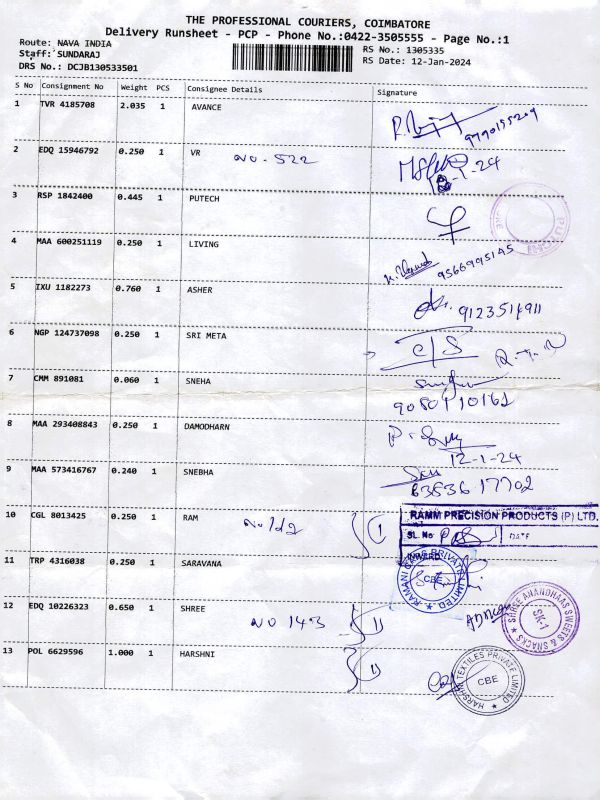 THE PROFESSIONAL COURIERS, COIMBATORE
Delivery Runsheet - PCP - Phone No.:0422-3505555 - Page No.:1
Route: NAVA INDIA
Staff: SUNDARAJ
DRS No.: DCJB130533501
RS No.: 1305335
RS Date: 12-Jan-2024
S No Consignment No Weight PCS Consignee Details Signature
1 TVR 4185708 2.035 1 AVANCE
2 EDQ 15946792 0.250 1 VR NO. 522
3 RSP 1842400 0.445 1 PUTECH
4 MAA 600251119 0.250 1 LIVING 9566995145
5 IXU 1182273 0.760 1 ASHER
6 NGP 124737098 0.250 1 SRI META C/S
7 CMM 891081 0.060 1 SNEHA 9080110161
8 MAA 293408843 0.250 1 DAMODHARN 12-1-24
9 MAA 573416767 0.240 1 SNEBHA 63836 17702
10 CGL 8013425 0.250 1 RAM
RAMM PRECISION PRODUCTS (P) LTD.
SL. No DATE
INWARD
11 TRP 4316038 0.250 1 SARAVANA
RAMANI CARS PRIVATE LIMITED
CBE
12 EDQ 10226323 0.650 1 SHREE NO 143
SHREE ANANDHAAS SWEETS & SNACKS
SK-1
13 POL 6629596 1.000 1 HARSHNI
HARSHNI TEXTILES PRIVATE LIMITED
CBE